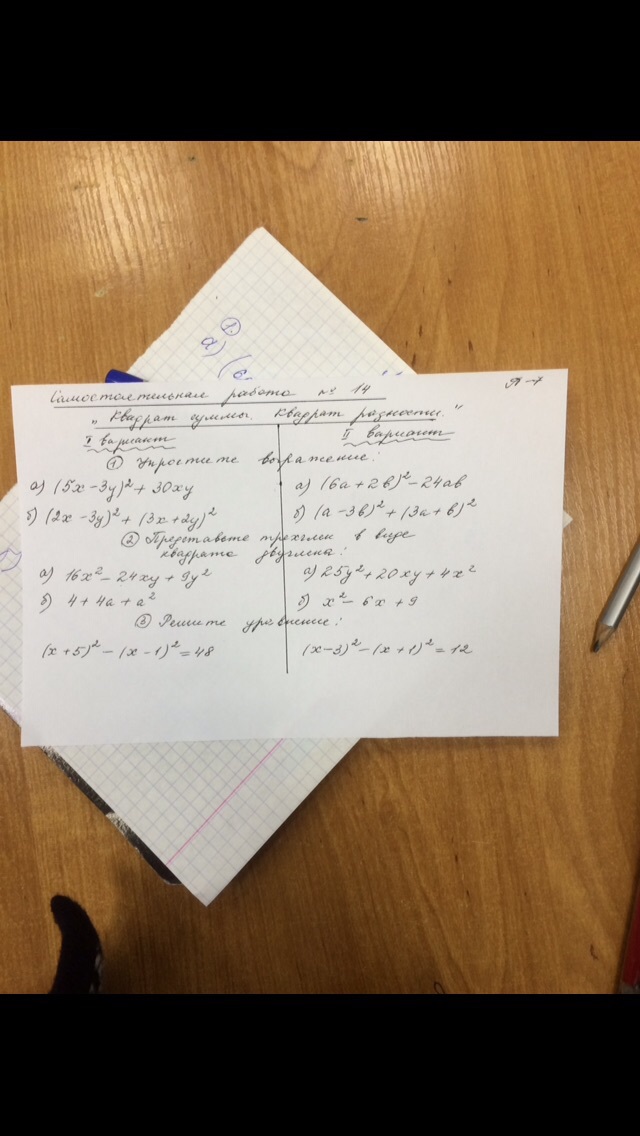 1.
а) (6
Самостоятельная работа № 14
А-7
„Квадрат суммы. Квадрат разности."
I вариант
II вариант
① Упростите выражение:
а) (5x-3y)²+30xy
а) (6a+2b)²-24ab
б) (2x-3y)²+(3x+2y)²
б) (a-3b)²+(3a+b)²
② Представьте трехчлен в виде
квадрата двучлена:
а) 16x²-24xy+9y²
а) 25y²+20xy+4x²
б) 4+4a+a²
б) x²-6x+9
③ Решите уравнение:
(x+5)²-(x-1)²=48
(x-3)²-(x+1)²=12